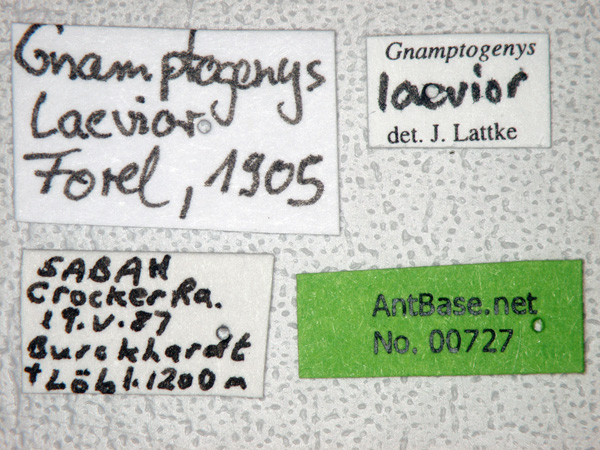 Gnamptogenys
Laevior
Forel, 1905
Gnamptogenys
laevior
det. J. Lattke
SABAH
Crocker Ra.
19.V.87
Burckhardt
+ Löbl. 1200 m
AntBase.net
No. 00727